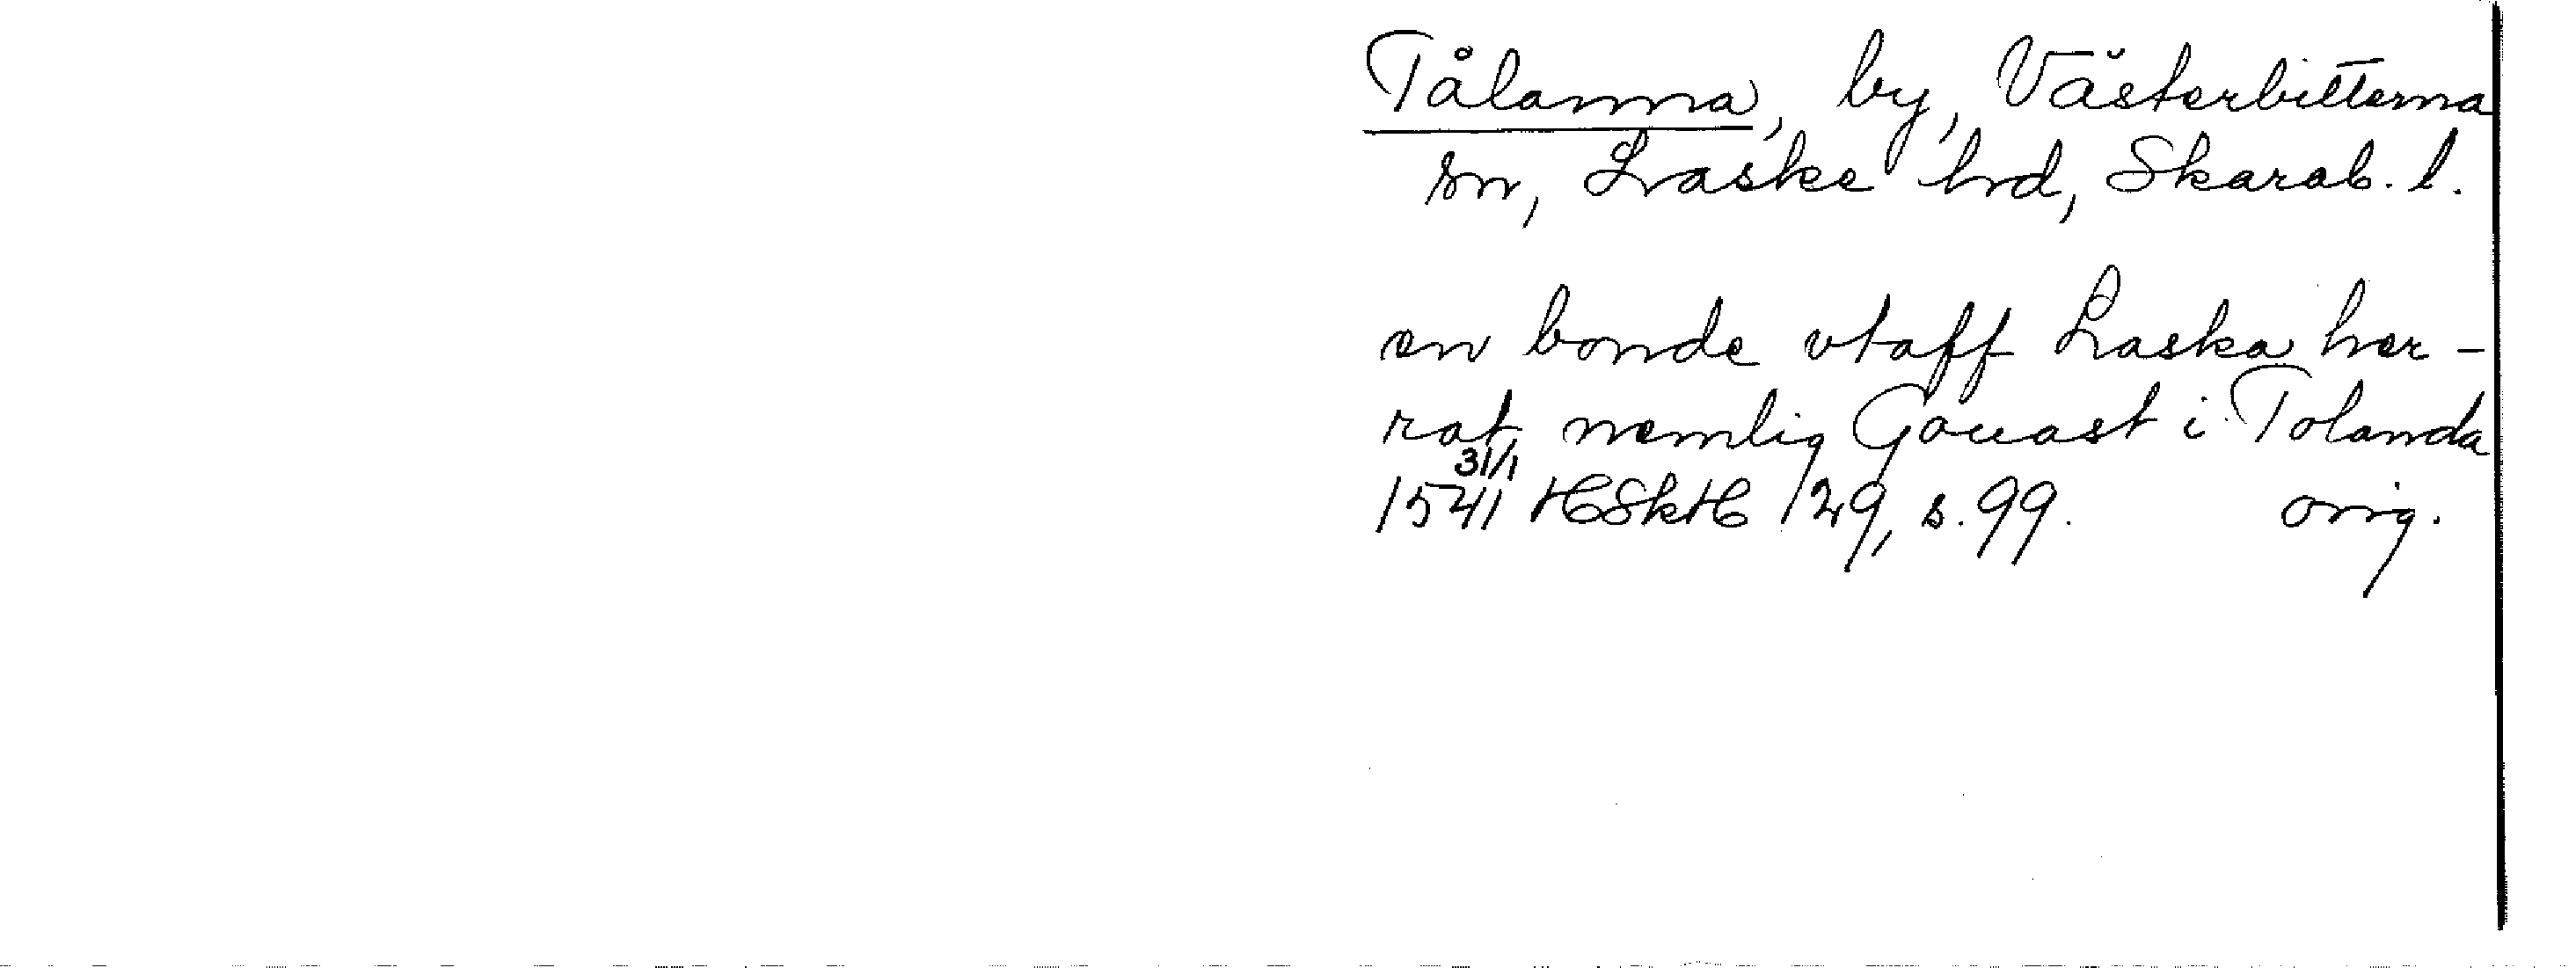 Tålanna, by, Västerbitterna
sn, Laske hd, Skarab. l.
en bonde vtaff Laska her-
rat nemlig Gouast i Tolanda
1541 31/1 HSkH 129, s. 99. orig.